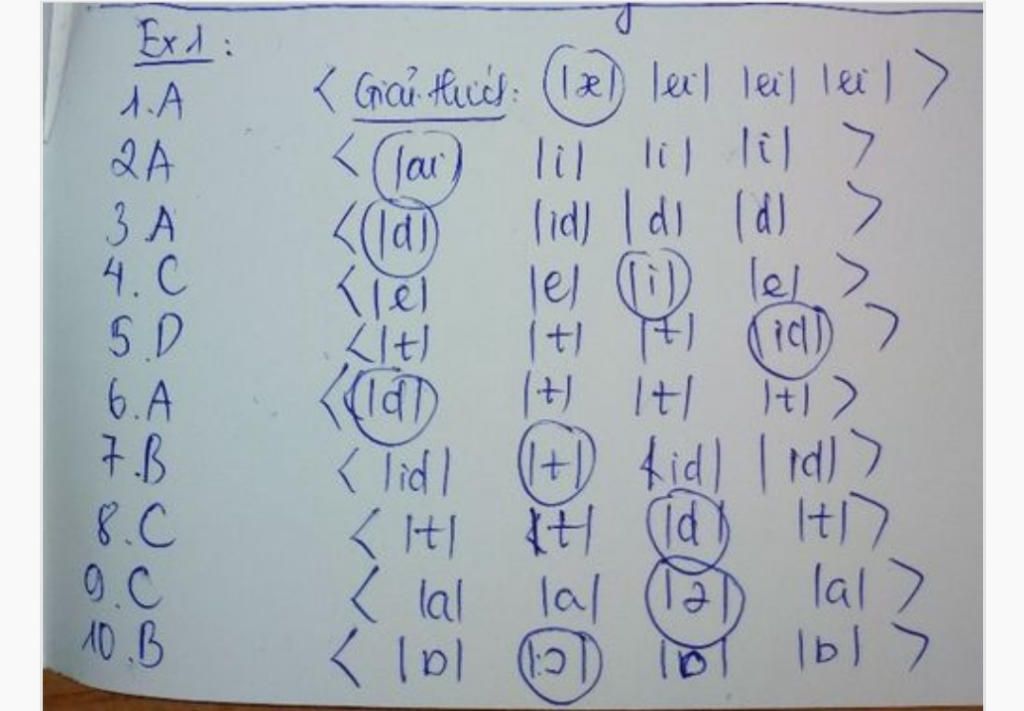 Ex1:
1.A < Giải thích: |æ| |ei| |ei| |ei| >
2A < |ai| |i| |i| |i| >
3.A < |d| |id| |d| |d| >
4.C < |e| |e| |i| |e| >
5.D < |t| |t| |t| |id| >
6.A < |d| |t| |t| |t| >
7.B < |id| |t| |id| |id| >
8.C < |t| |t| |d| |t| >
9.C < |a| |a| |ə| |a| >
10.B < |ɒ| |ɔ| |ɒ| |ɒ| >